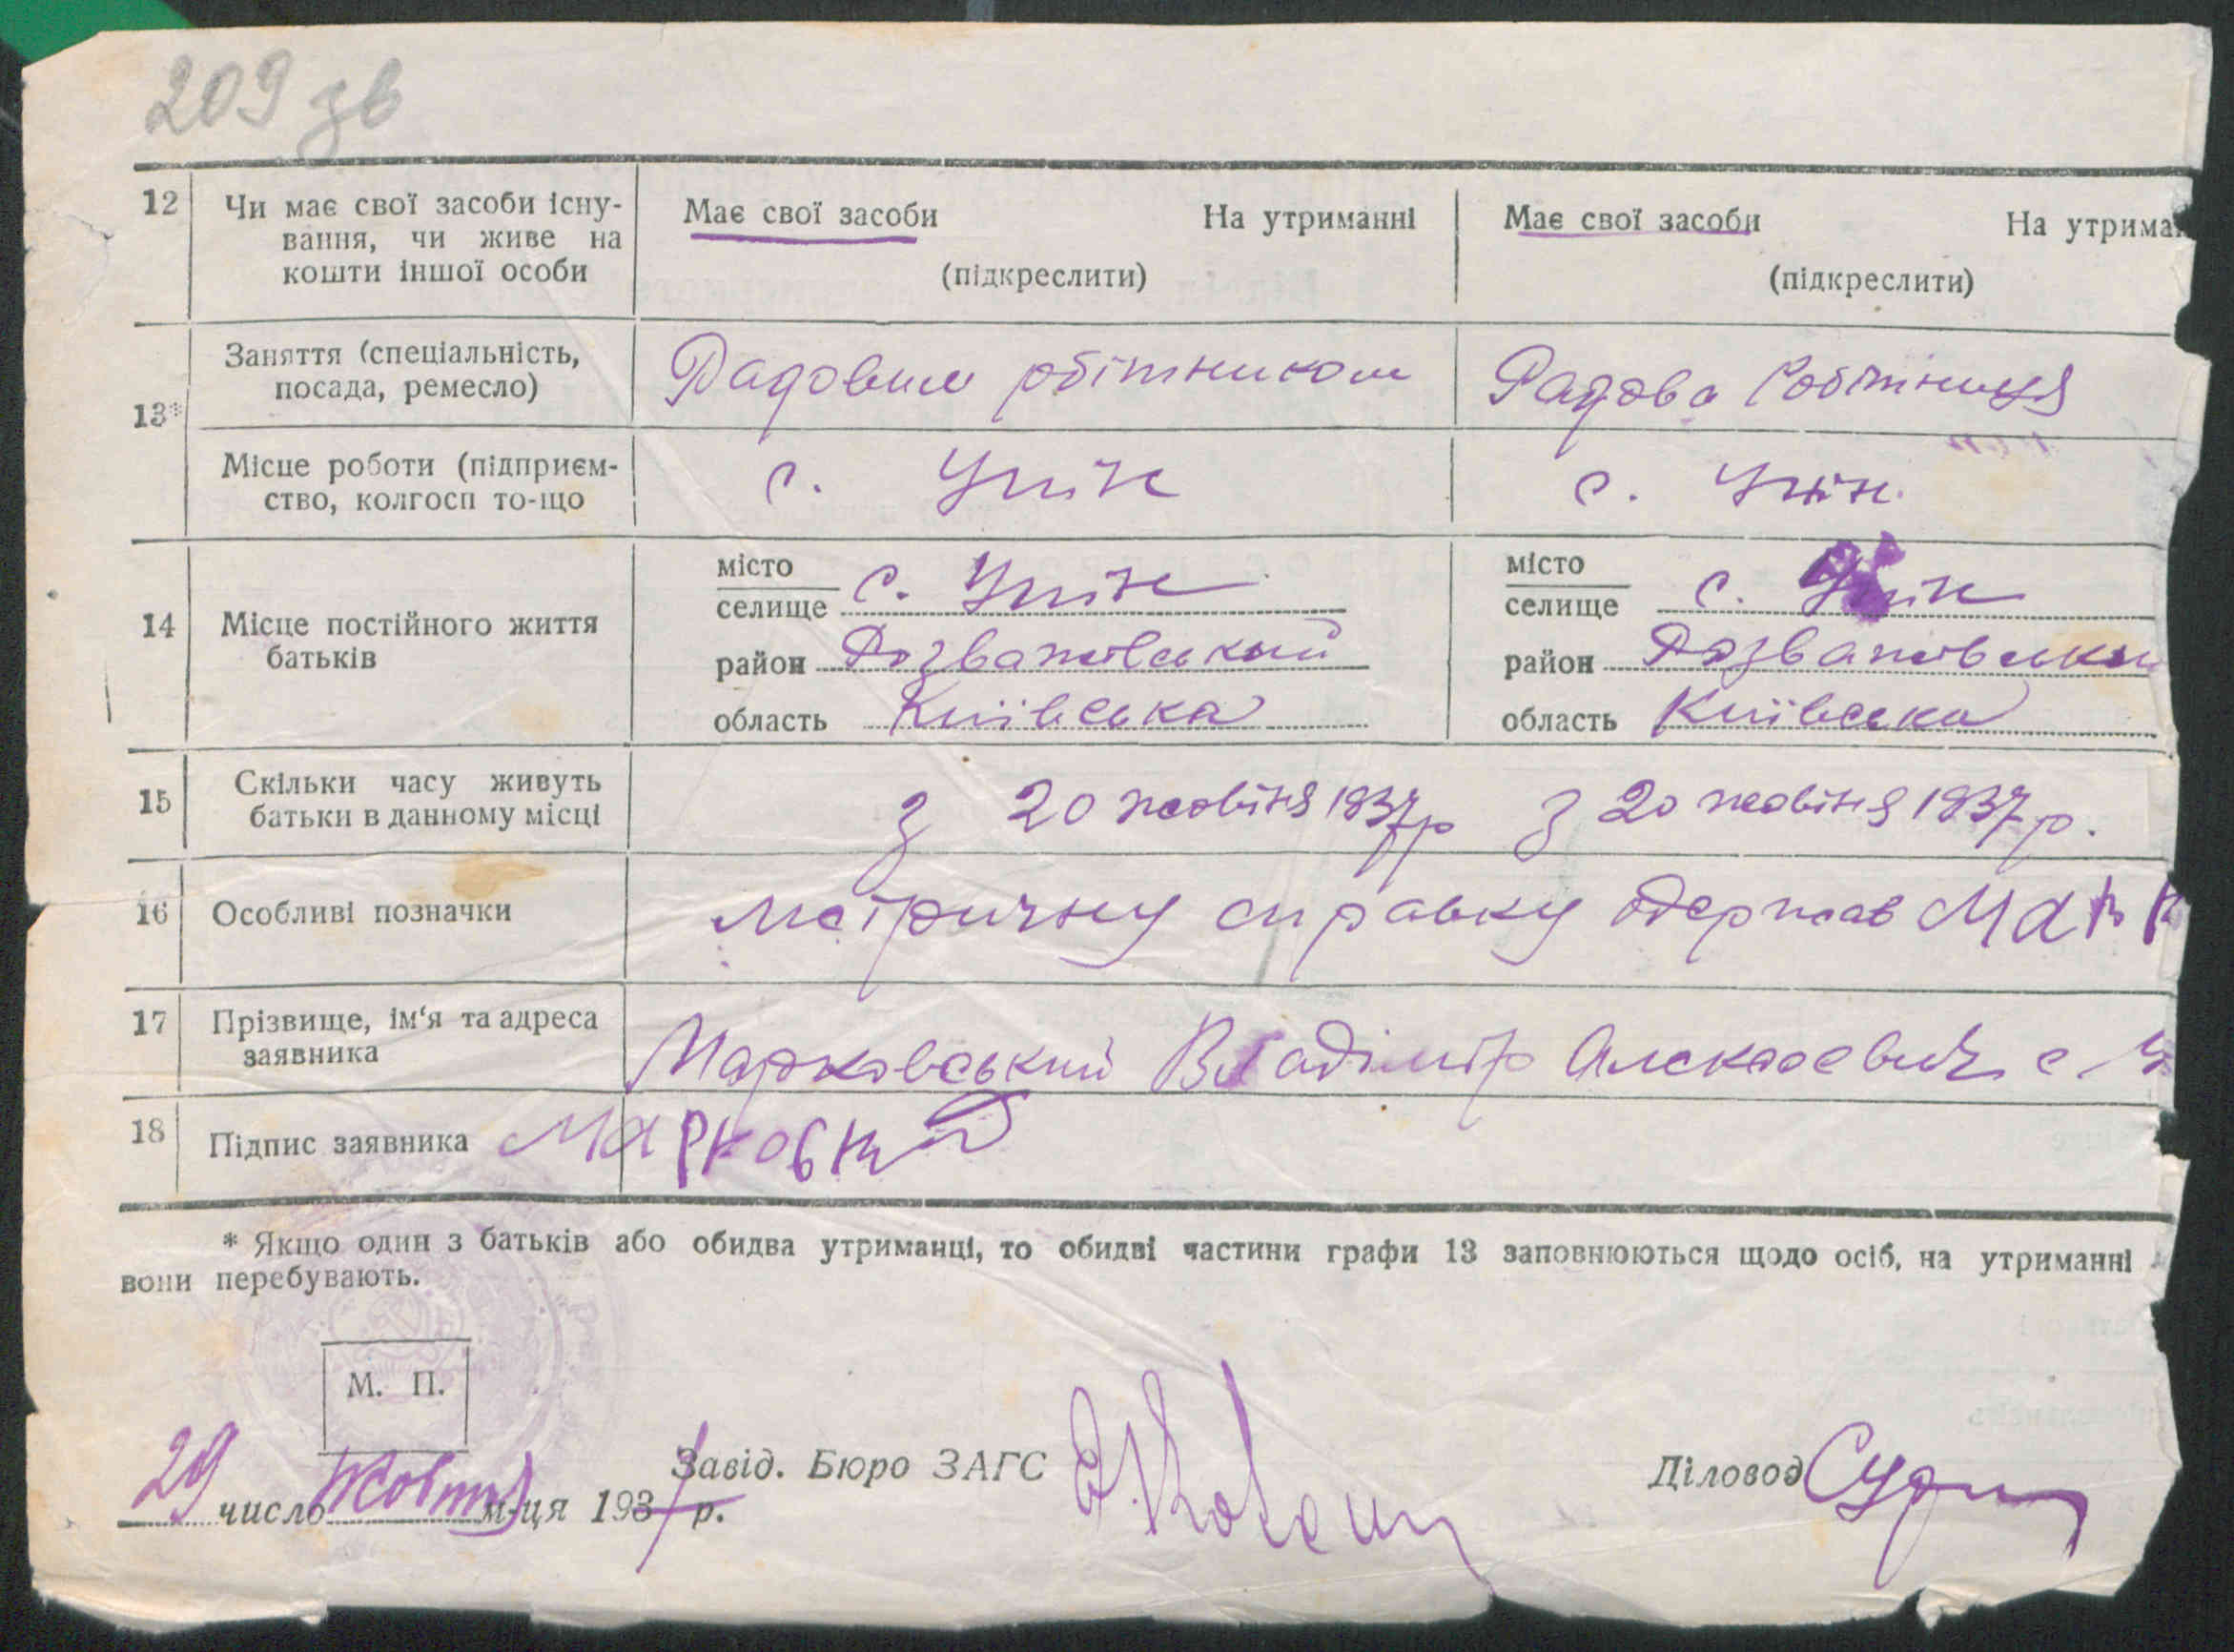 209 зв
12 Чи має свої засоби існу- Має свої засоби На утриманні Має свої засоби На утрима
вання, чи живе на
кошти іншої особи (підкреслити) (підкреслити)
13* Заняття (спеціальність, Радовим робітником Радова Робітниця
посада, ремесло)
Місце роботи (підприєм- с. Унін с. Унін.
ство, колгосп то-що
14 Місце постійного життя місто с. Унін місто с. Унін
батьків селище селище
район Розважівський район Розважівськи
область Київська область Київська
15 Скільки часу живуть з 20 жовтня 1937р з 20 жовтня 1937 р.
батьки в данному місці
16 Особливі позначки Метричну справку одержав Марк
17 Прізвище, ім'я та адреса Марковський Владімір Алексеевич с
заявника
18 Підпис заявника Марковський
* Якщо один з батьків або обидва утриманці, то обидві частини графи 13 заповнюються щодо осіб, на утриманні
вони перебувають.
М. П.
29 число Жовтня м-ця 1937 р. Завід. Бюро ЗАГС Діловод